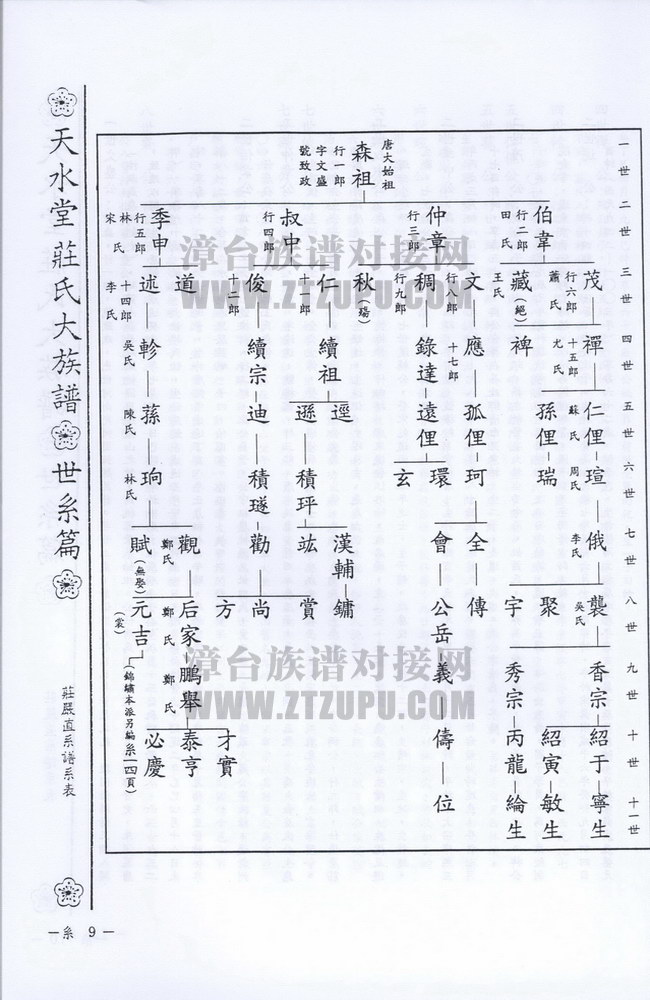 一世 二世 三世 四世 五世 六世 七世 八世 九世 十世 十一世
唐大始祖
森祖
行一郎
字文盛
號致政
伯韋
行二郎
田氏
仲章
行三郎
叔中
行四郎
季申
行五郎
林氏
宋氏
茂
行六郎
蕭氏
藏
(絕)
王氏
文
行八郎
稠
行九郎
秋
(殤)
仁
十一郎
俊
十二郎
道
述
十四郎
李氏
禪
十五郎
尤氏
裨
應
十七郎
錄達
續祖
續宗
軫
吳氏
仁俚
蘇氏
孫俚
孤俚
遠俚
逕
遜
迪
蓀
陳氏
瑄
周氏
瑞
珂
環
玄
積玶
積璲
珦
林氏
俄
李氏
全
會
漢輔
竑
勸
觀
鄭氏
賦
(無娶)
襲
吳氏
聚
宇
傳
公岳
鏞
賞
尚
方
后家
鄭氏
元吉
(裳)
香宗
秀宗
義
鵬舉
鄭氏
(錦繡本派另編系一四頁)
紹于
紹寅
丙龍
儔
才實
泰亨
必慶
寧生
敏生
綸生
位
天水堂 莊氏大族譜 世系篇
莊嚴直系譜系表
一系 9 一
漳台族谱对接网
WWW.ZTZUPU.COM
漳台族谱对接网
WWW.ZTZUPU.COM